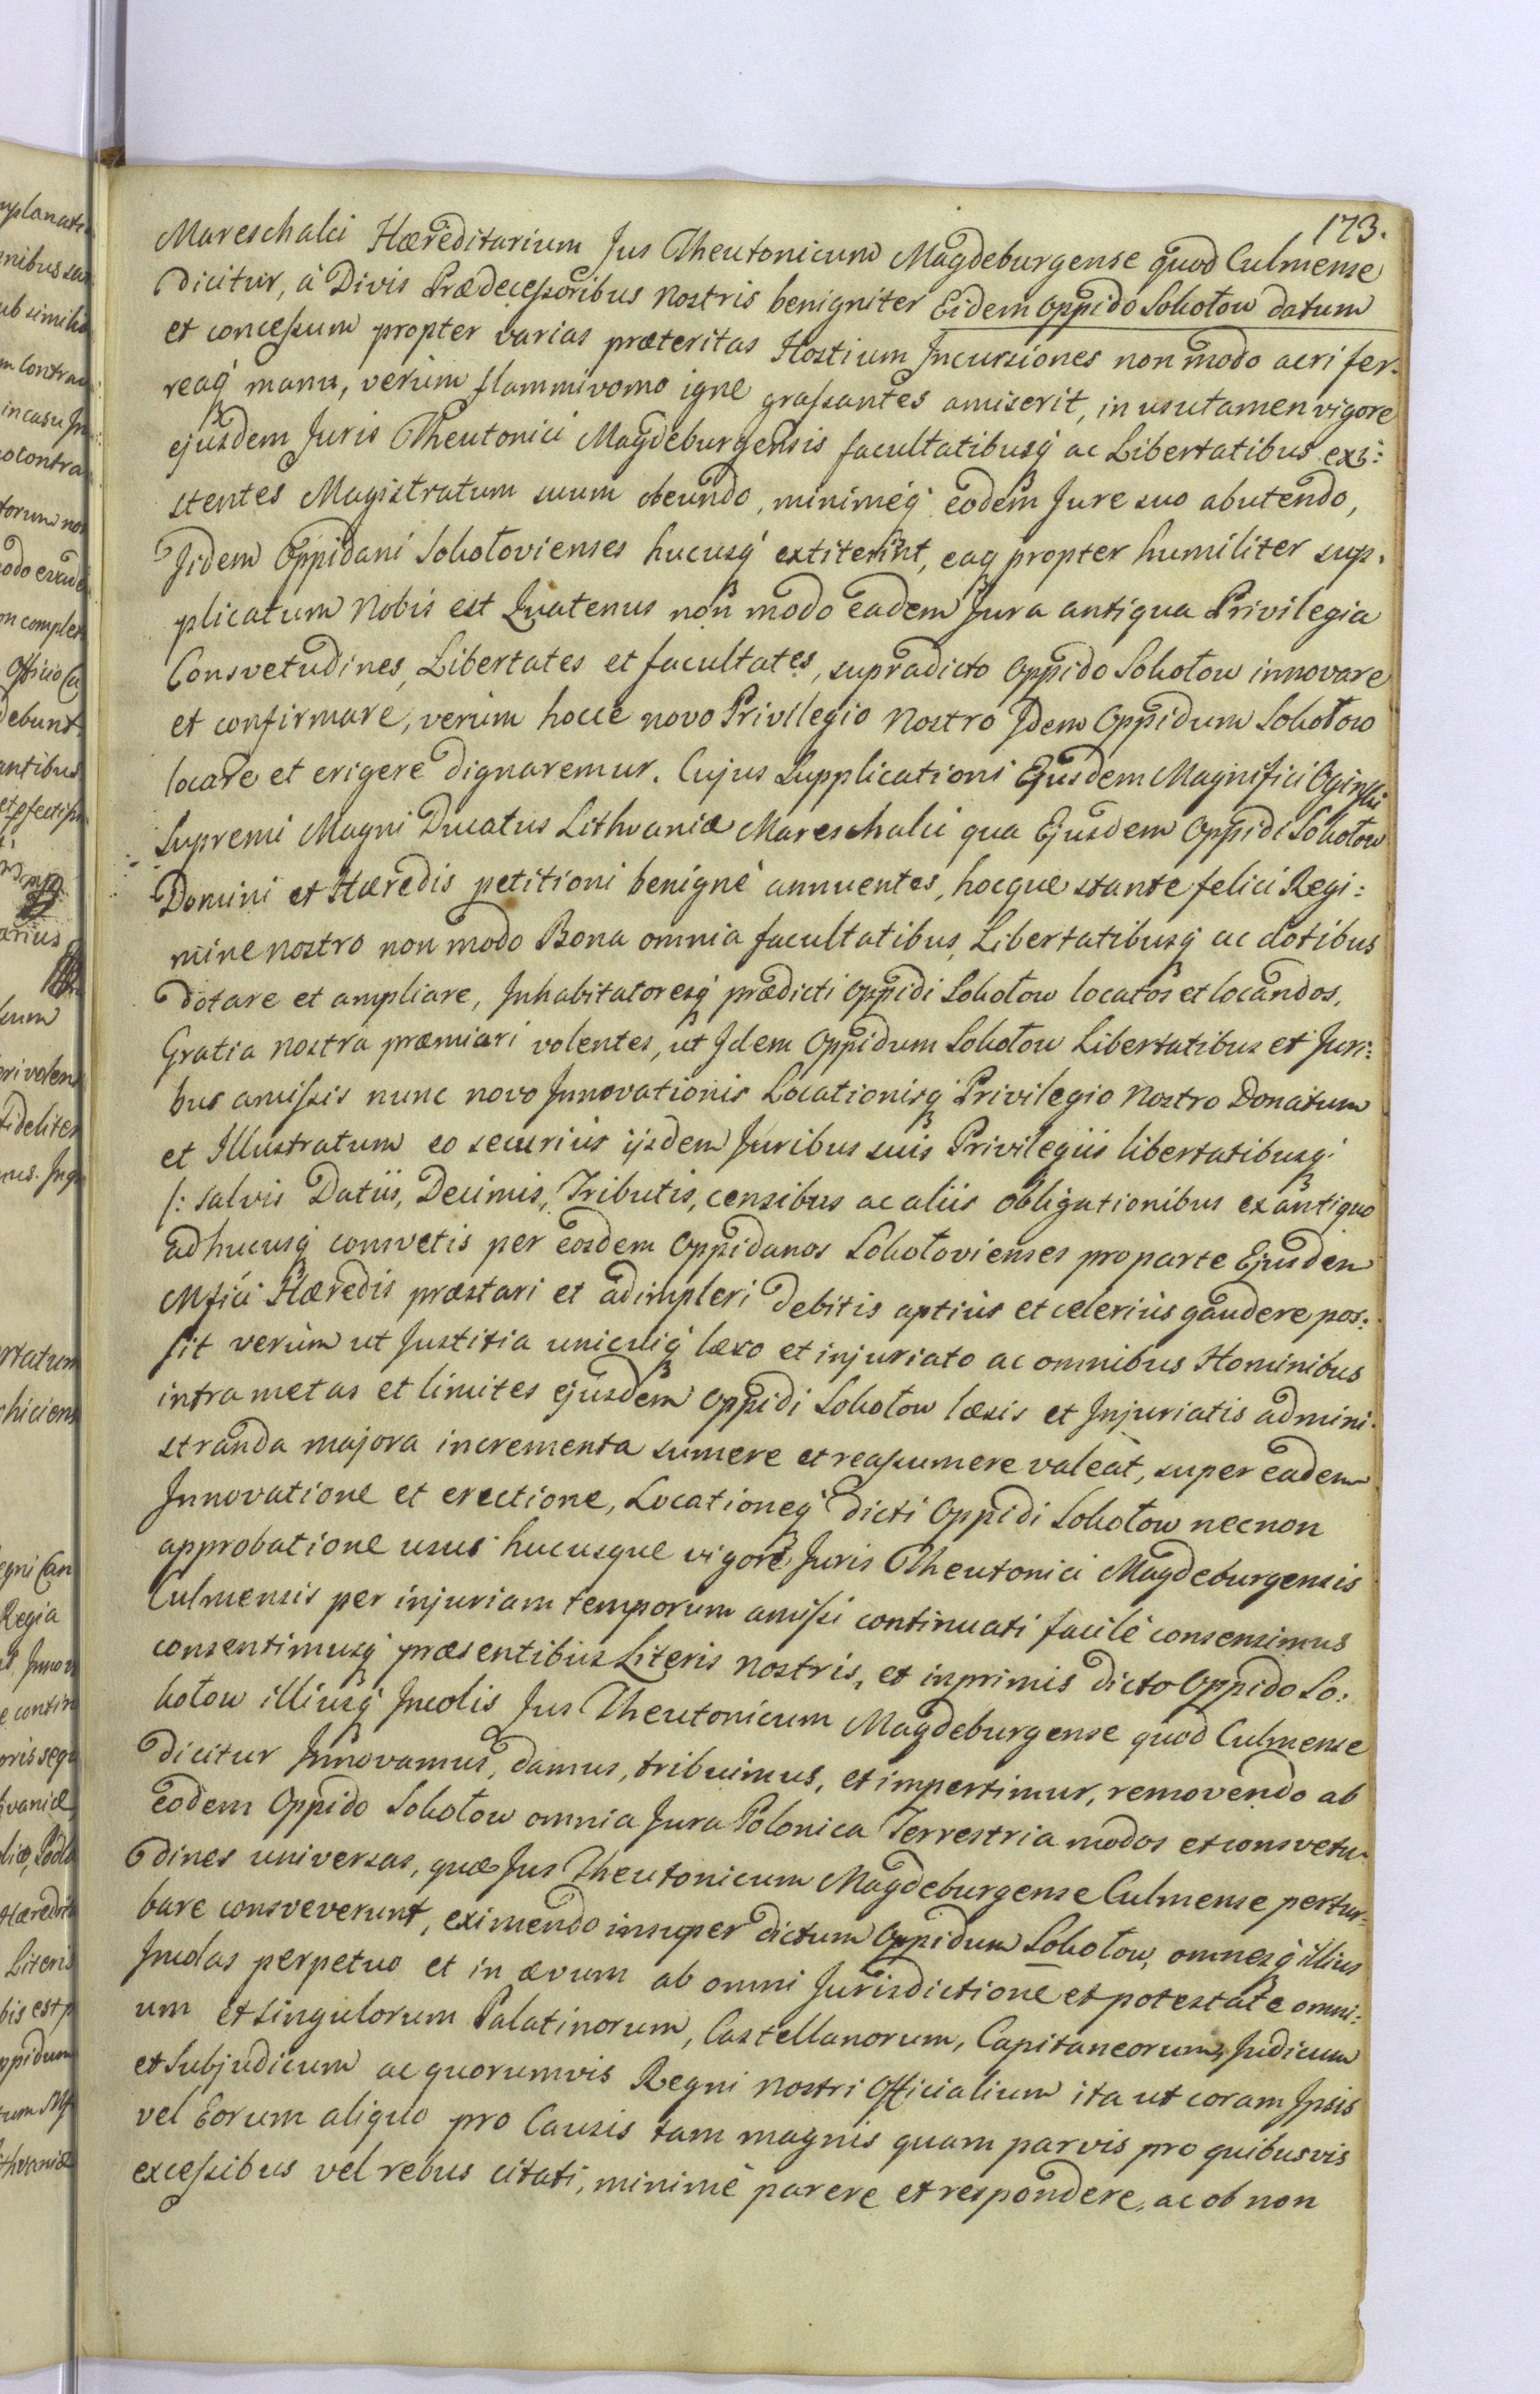 173.
Mareschalci Hæreditarium Jus Theutonicum Magdeburgense quod Culmense
dicitur, à Divis Prædeceſsoribus nostris benigniter Eidem oppido Sokołow datum
et conceſsum propter varias præteritas Hostium Incursiones non modo acri fer-
reaq́ manu, verùm flammivomo igne graſsantes amiserit, in usu tamen vigore
ejusdem Juris Theutonici Magdeburgensis facultatibusq́ ac Libertatibus exi:
stentes Magistratum suum obeundo, minimeq́ eodem Jure suo abutendo,
Jidem Oppidani Sokołovienses hucusq́ extiterint, eaq propter humiliter sup-
plicatum Nobis est Quatenus non modo eadem Jura antiqua Privilegia
Consvetudines, Libertates et facultates, supradicto Oppido Sokołow innovare
et confirmare, verùm hocce novo Privilegio Nostro Jdem Oppidum Sokołow
locare et erigere dignaremur. Cujus Supplicationi Ejusdem Magnifici Oginski
Supremi Magni Ducatus Lithvaniæ Mareschalci qua Ejusdem Oppidi Sokołow
Domini et Hæredis petitioni benignè annuentes, hocque stante felici Regi:
mine nostro non modo Bona omnia facultatibus, Libertatibusq́ ac dotibus
dotare et ampliare, Inhabitatoresq́ prædicti Oppidi Sokołow locatos et locandos,
Gratia nostra præmiari volentes, ut Jdem Oppidum Sokołow Libertatibus et Juri:
bus amiſsis nunc novo Innovationis Locationisq́ Privilegio Nostro Donatum
et Illustratum eo securiùs ijsdem Juribus suis Privilegiis libertatibusq́
/: salvis Datiis, Decimis, Tributis, censibus ac aliis obligationibus ex antiquo
adhucusq́ consvetis per eosdem Oppidanos Sokołovienses pro parte Ejusdem
Mfici Hæredis præstari et adimpleri debitis aptiùs et celeriùs gaudere pos:
sit verùm ut Justitia unicuiq́ læso et injuriato ac omnibus Hominibus
intra metas et limites ejusdem Oppidi Sokołow læsis et Injuriatis admini-
stranda majora incrementa sumere et reaſsumere valeat, super eadem
Innovatione et erectione, Locationeq́ dicti Oppidi Sokołow necnon
approbatione usus hucusque vigore Juris Theutonici Magdeburgensis
Culmensis per injuriam temporum amiſsi continuati facilè consensimus
consentimusq́ præsentibus Literis nostris, et inprimis dicto Oppido So:
kołow illiusq́ Incolis Jus Theutonicum Magdeburgense quod Culmense
dicitur Innovamus, damus, tribuimus, et impertimur, removendo ab
eodem Oppido Sokołow omnia Jura Polonica Terrestria modos et consvetu-
dines universas, quæ Jus Theutonicum Magdeburgense Culmense pertur:
bare consveverunt, eximendo insuper dictum Oppidum Sokołow, omnesq́ illius
Incolas perpetuo et in ævum ab omni Jurisdictione et potestate omni:
um et singulorum Palatinorum, Castellanorum, Capitaneorum, Judicum
et Subjudicum ac quorumvis Regni nostri Officialium ita ut coram Ipsis
vel Eorum aliquo pro Causis tam magnis quam parvis pro quibusvis
exceſsibus vel rebus citati, minimè parere et respondere, ac ob non